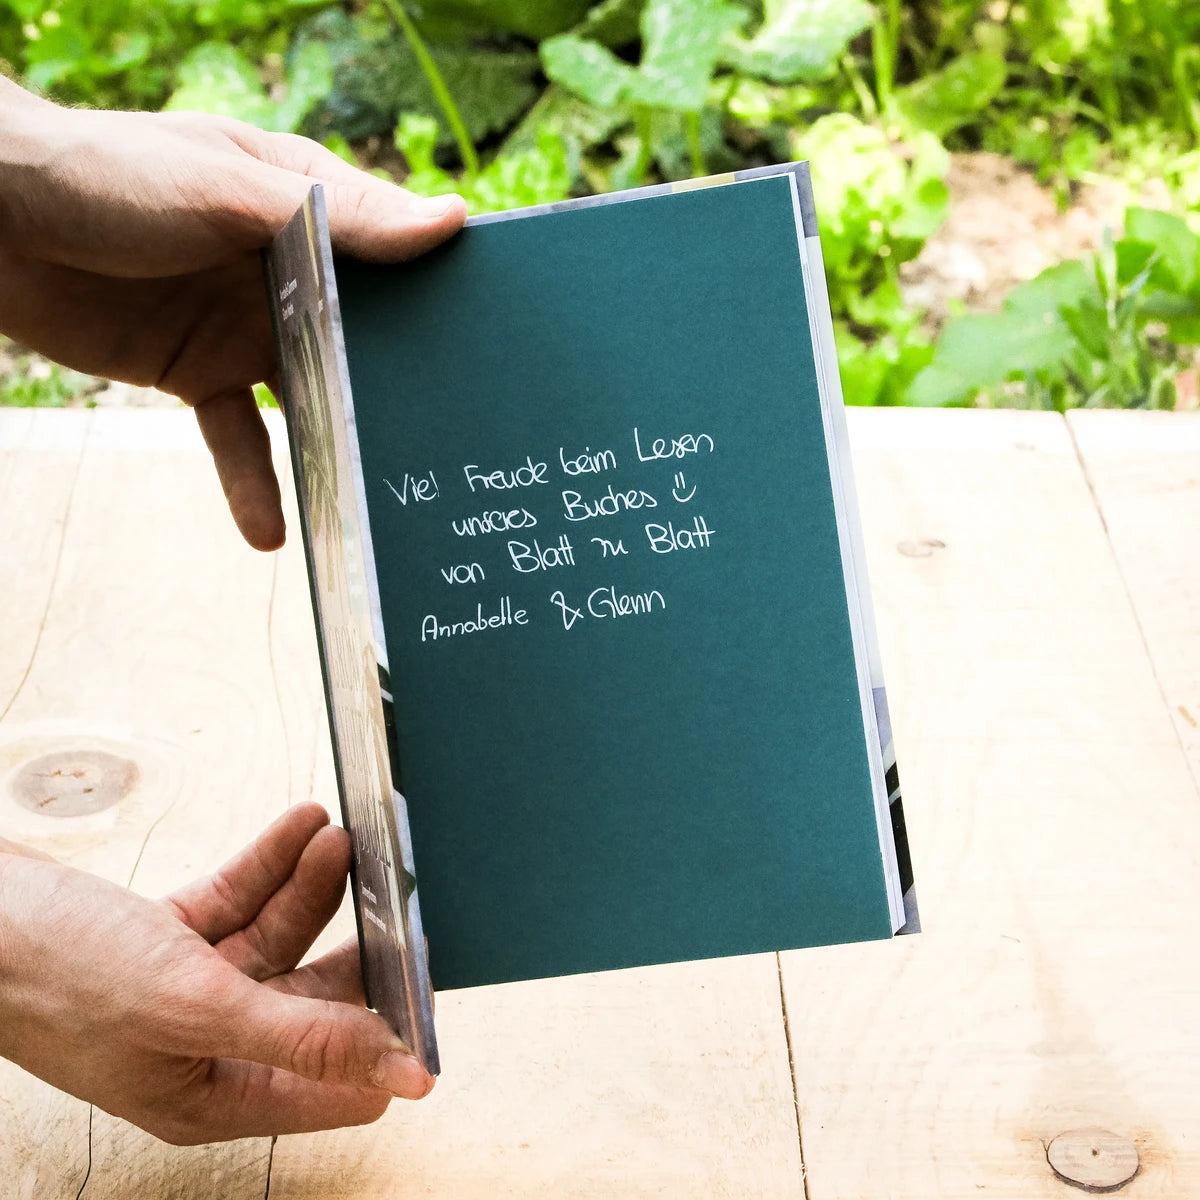 Viel Freude beim Lesen
unseres Buches
von Blatt zu Blatt
Annabelle & Glenn